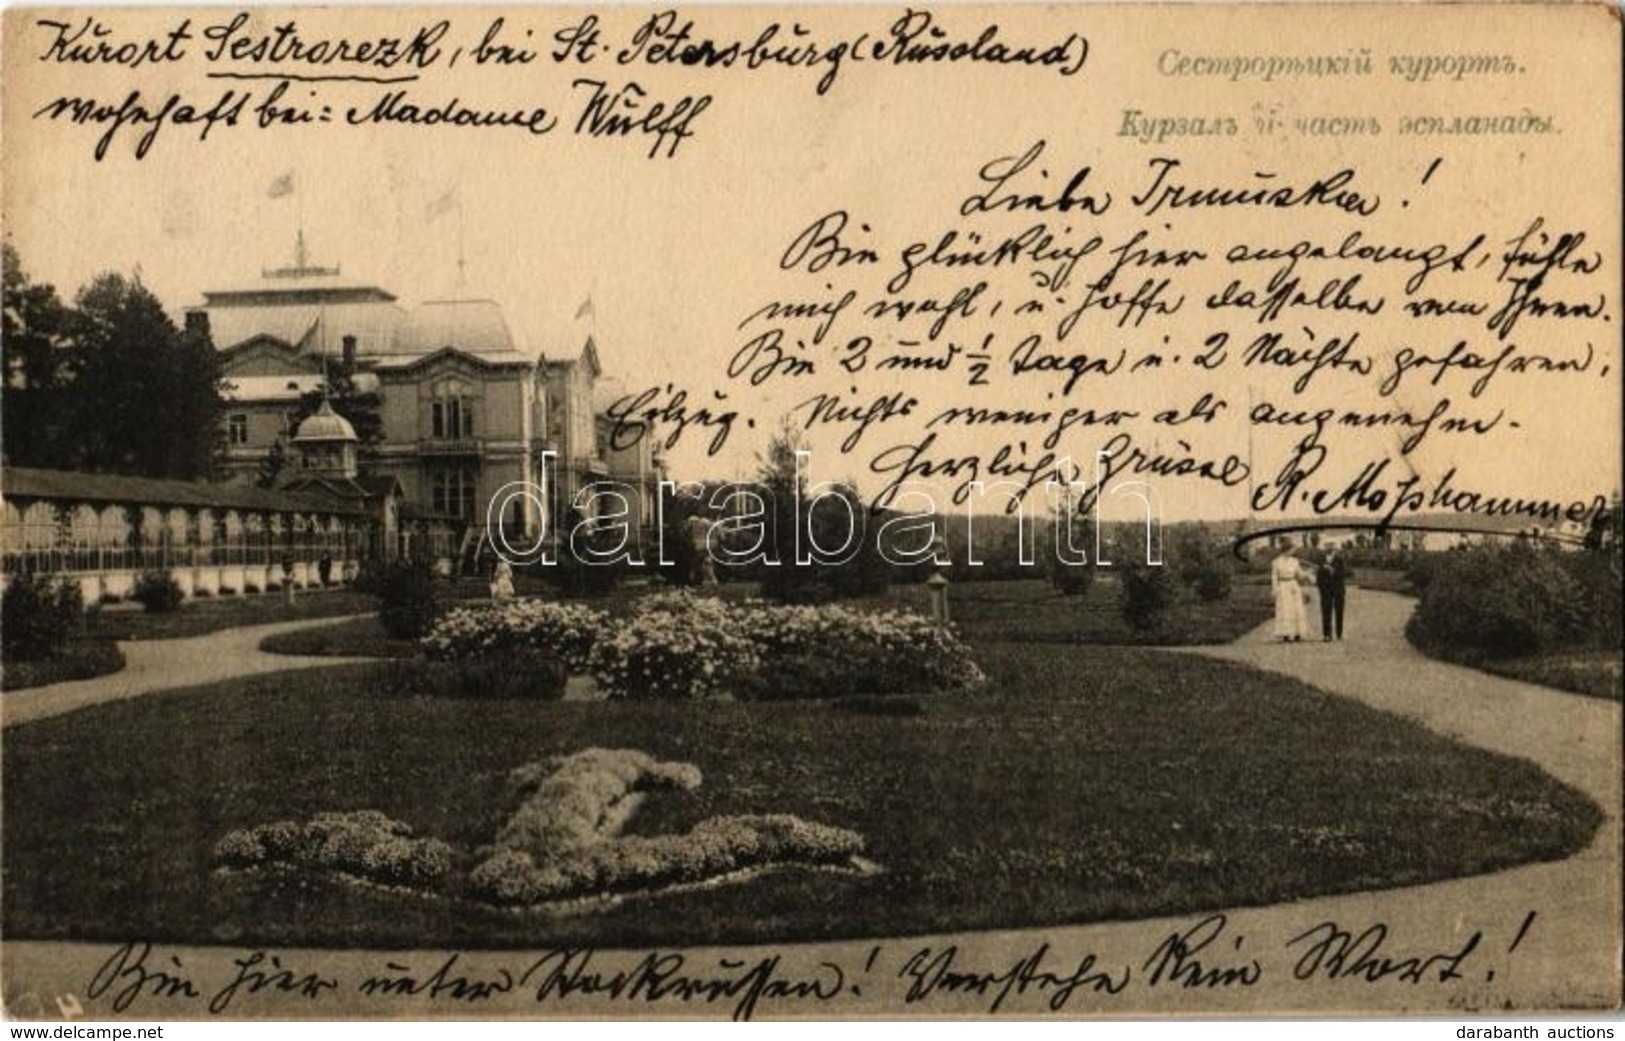 Kurort Sestrorezk, bei St. Petersburg (Russland)
wohnhaft bei: Madame Wulff
Сестрорѣцкій курортъ.
Курзалъ и часть эспланады.
Liebe Irmuska!
Bin glücklich hier angelangt, fühle
mich wohl, u. hoffe dasselbe von Ihnen.
Bin 2 und ½ Tage u. 2 Nächte gefahren,
Eilzug. Nichts weniger als angenehm.
Herzliche Grüsse
R. Moßhammer
darabanth
Bin hier unter Stockrussen! Verstehe kein Wort!
www.delcampe.net
darabanth auctions